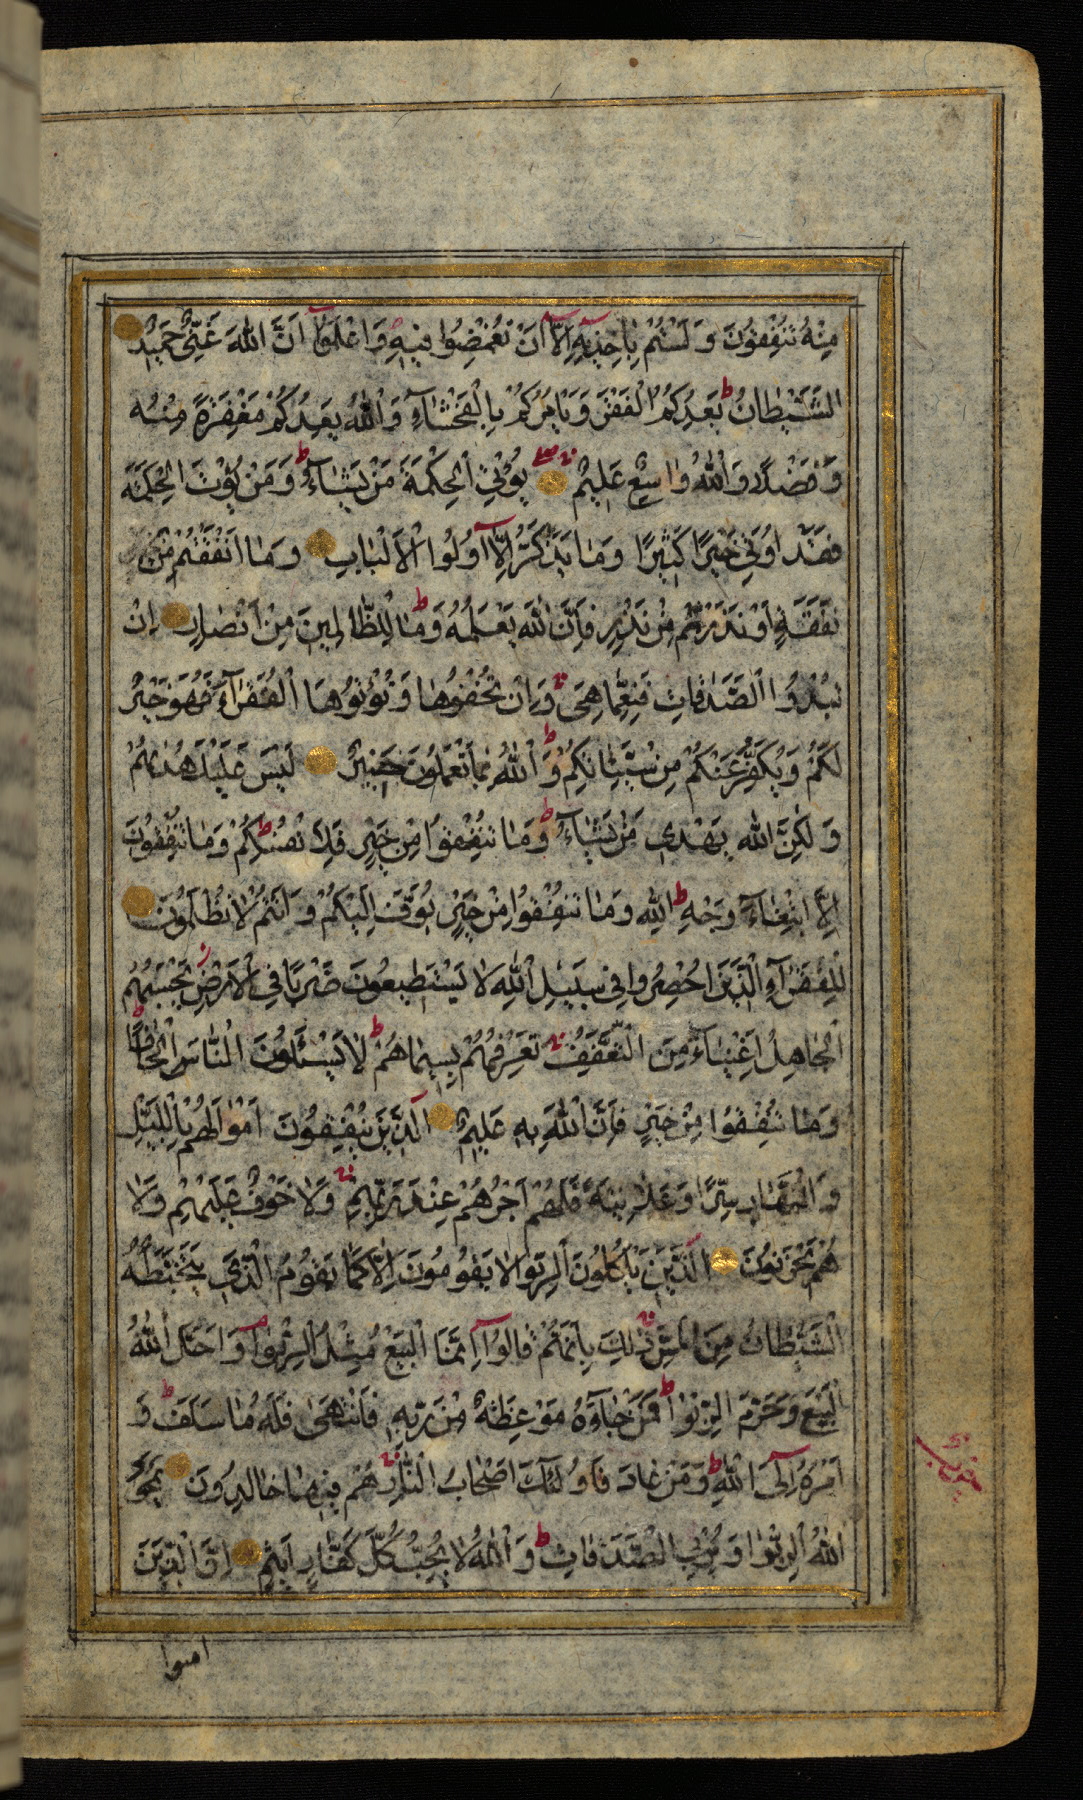 مِنْهُ تُنْفِقُونَ وَلَسْتُمْ بِاٰخِذِيهِ اِلَّآ اَنْ تُغْمِضُوا فِيهِ وَاعْلَمُوٓا اَنَّ اللّٰهَ غَنِيٌّ حَمِيدٌ
اَلشَّيْطَانُ يَعِدُكُمُ الْفَقْرَ وَيَاْمُرُكُمْ بِالْفَحْشَآءِ وَاللّٰهُ يَعِدُكُمْ مَغْفِرَةً مِنْهُ
وَفَضْلًا وَاللّٰهُ وَاسِعٌ عَلِيمٌ يُؤْتِي الْحِكْمَةَ مَنْ يَشَآءُ وَمَنْ يُؤْتَ الْحِكْمَةَ
فَقَدْ اُوتِيَ خَيْرًا كَثِيرًا وَمَا يَذَّكَّرُ اِلَّآ اُولُوا الْاَلْبَابِ وَمَا اَنْفَقْتُمْ مِنْ
نَفَقَةٍ اَوْ نَذَرْتُمْ مِنْ نَذْرٍ فَاِنَّ اللّٰهَ يَعْلَمُهُ وَمَا لِلظَّالِمِينَ مِنْ اَنْصَارٍ اِنْ
تُبْدُوا الصَّدَقَاتِ فَنِعِمَّا هِيَ وَاِنْ تُخْفُوهَا وَتُؤْتُوهَا الْفُقَرَآءَ فَهُوَ خَيْرٌ
لَكُمْ وَيُكَفِّرُ عَنْكُمْ مِنْ سَيِّئَاتِكُمْ وَاللّٰهُ بِمَا تَعْمَلُونَ خَبِيرٌ لَيْسَ عَلَيْكَ هُدٰيهُمْ
وَلٰكِنَّ اللّٰهَ يَهْدِي مَنْ يَشَآءُ وَمَا تُنْفِقُوا مِنْ خَيْرٍ فَلِاَنْفُسِكُمْ وَمَا تُنْفِقُونَ
اِلَّا ابْتِغَآءَ وَجْهِ اللّٰهِ وَمَا تُنْفِقُوا مِنْ خَيْرٍ يُوَفَّ اِلَيْكُمْ وَاَنْتُمْ لَا تُظْلَمُونَ
لِلْفُقَرَآءِ الَّذِينَ اُحْصِرُوا فِي سَبِيلِ اللّٰهِ لَا يَسْتَطِيعُونَ ضَرْبًا فِي الْاَرْضِ يَحْسَبُهُمُ
الْجَاهِلُ اَغْنِيَآءَ مِنَ التَّعَفُّفِ تَعْرِفُهُمْ بِسِيمَاهُمْ لَا يَسْئَلُونَ النَّاسَ اِلْحَافًا
وَمَا تُنْفِقُوا مِنْ خَيْرٍ فَاِنَّ اللّٰهَ بِهِ عَلِيمٌ اَلَّذِينَ يُنْفِقُونَ اَمْوَالَهُمْ بِالَّيْلِ
وَالنَّهَارِ سِرًّا وَعَلَانِيَةً فَلَهُمْ اَجْرُهُمْ عِنْدَ رَبِّهِمْ وَلَا خَوْفٌ عَلَيْهِمْ وَلَا
هُمْ يَحْزَنُونَ اَلَّذِينَ يَاْكُلُونَ الرِّبٰوا لَا يَقُومُونَ اِلَّا كَمَا يَقُومُ الَّذِي يَتَخَبَّطُهُ
الشَّيْطَانُ مِنَ الْمَسِّ ذٰلِكَ بِاَنَّهُمْ قَالُوٓا اِنَّمَا الْبَيْعُ مِثْلُ الرِّبٰوا وَاَحَلَّ اللّٰهُ
الْبَيْعَ وَحَرَّمَ الرِّبٰوا فَمَنْ جَآءَهُ مَوْعِظَةٌ مِنْ رَبِّهِ فَانْتَهٰى فَلَهُ مَا سَلَفَ وَ
اَمْرُهُ اِلَى اللّٰهِ وَمَنْ عَادَ فَاُولٰئِكَ اَصْحَابُ النَّارِ هُمْ فِيهَا خَالِدُونَ يَمْحَقُ
اللّٰهُ الرِّبٰوا وَيُرْبِي الصَّدَقَاتِ وَاللّٰهُ لَا يُحِبُّ كُلَّ كَفَّارٍ اَثِيمٍ اِنَّ الَّذِينَ
امنوا